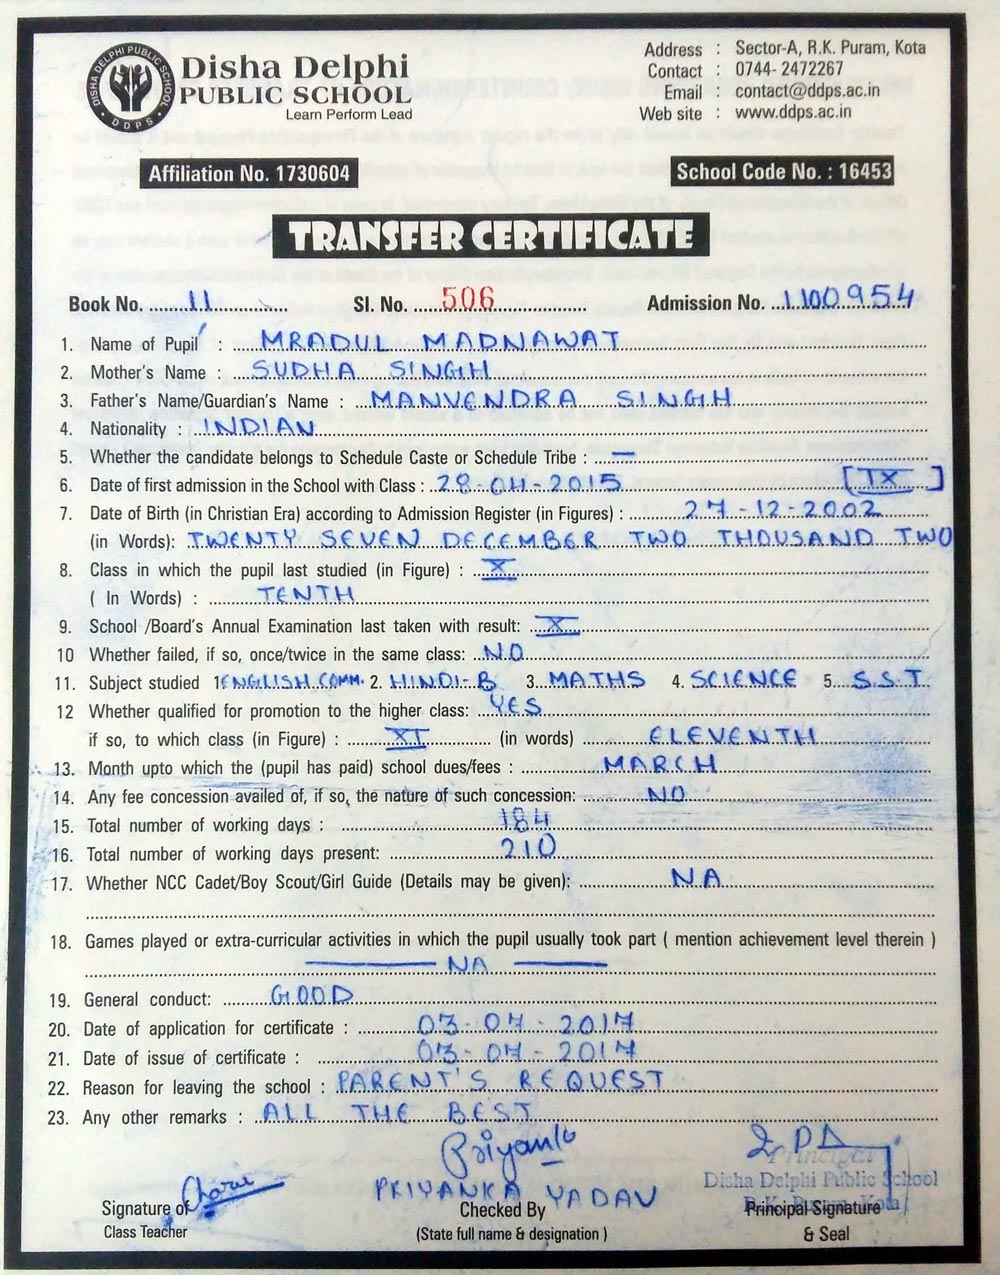 DISHA DELPHI PUBLIC SCHOOL
DDPS
Disha Delphi
PUBLIC SCHOOL
Learn Perform Lead
Address : Sector-A, R.K. Puram, Kota
Contact : 0744- 2472267
Email : contact@ddps.ac.in
Web site : www.ddps.ac.in
Affiliation No. 1730604 School Code No. : 16453
TRANSFER CERTIFICATE
Book No. 11 Sl. No. 506 Admission No. 1100954
1. Name of Pupil : MRADUL MADNAWAT
2. Mother's Name : SUDHA SINGH
3. Father's Name/Guardian's Name : MANVENDRA SINGH
4. Nationality : INDIAN
5. Whether the candidate belongs to Schedule Caste or Schedule Tribe : —
6. Date of first admission in the School with Class : 28-04-2015 [IX]
7. Date of Birth (in Christian Era) according to Admission Register (in Figures) : 27-12-2002
(in Words): TWENTY SEVEN DECEMBER TWO THOUSAND TWO
8. Class in which the pupil last studied (in Figure) : X
( In Words) : TENTH
9. School /Board's Annual Examination last taken with result: X
10 Whether failed, if so, once/twice in the same class: NO
11. Subject studied 1. ENGLISH COMM. 2. HINDI-B 3. MATHS 4. SCIENCE 5. S.S.T.
12 Whether qualified for promotion to the higher class: YES
if so, to which class (in Figure) : XI (in words) ELEVENTH
13. Month upto which the (pupil has paid) school dues/fees : MARCH
14. Any fee concession availed of, if so, the nature of such concession: NO
15. Total number of working days : 184
16. Total number of working days present: 210
17. Whether NCC Cadet/Boy Scout/Girl Guide (Details may be given): NA
18. Games played or extra-curricular activities in which the pupil usually took part ( mention achievement level therein )
— NA —
19. General conduct: GOOD
20. Date of application for certificate : 03-07-2017
21. Date of issue of certificate : 03-07-2017
22. Reason for leaving the school : PARENT'S REQUEST
23. Any other remarks : ALL THE BEST
Priyanka
PRIYANKA YADAV
Principal
Disha Delphi Public School
R.K. Puram, Kota
Signature of
Class Teacher
Checked By
(State full name & designation )
Principal Signature
& Seal